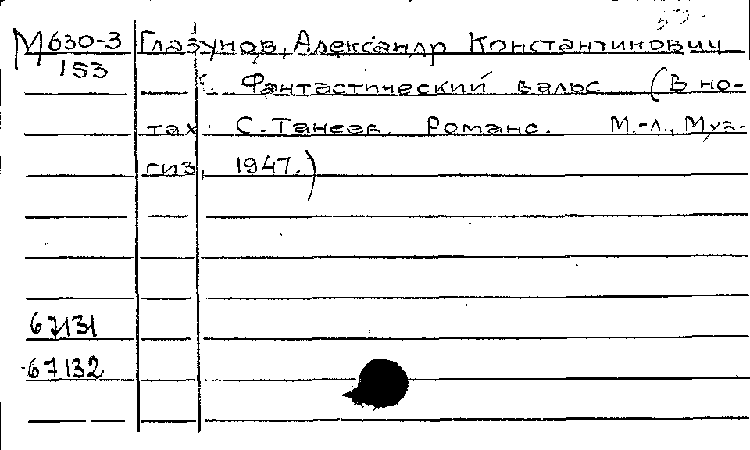 М630-3 Глазунов, Александр Константинович
153
Фантастический вальс (В но-
тах: С. Танеев. Романс. М.-Л., Муз-
гиз, 1947.)
67131
67132